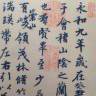 永和九年歲在
于會稽山陰之蘭
也羣賢畢至少
有崇山峻領茂林脩竹
湍暎帶左右引